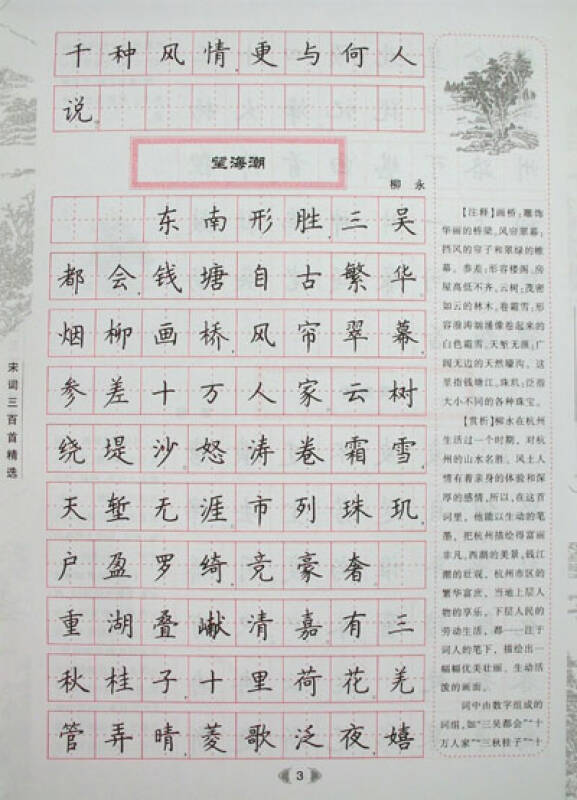 千种风情更与何人
说。
望海潮
柳 永
东南形胜，三吴
都会，钱塘自古繁华。
烟柳画桥，风帘翠幕，
参差十万人家。云树
绕堤沙。怒涛卷霜雪，
天堑无涯。市列珠玑，
户盈罗绮，竞豪奢。
重湖叠巘清嘉。有三
秋桂子，十里荷花。羌
管弄晴，菱歌泛夜，嬉
【注释】画桥：雕饰
华丽的桥梁。风帘翠幕：
挡风的帘子和翠绿的帷
幕。参差：形容楼阁、房
屋高低不齐。云树：茂密
如云的林木。卷霜雪：形
容浪涛汹涌像卷起来的
白色霜雪。天堑无涯：广
阔无边的天然壕沟。这
里指钱塘江。珠玑：泛指
大小不同的各种珠宝。
【赏析】柳永在杭州
生活过一个时期，对杭
州的山水名胜、风土人
情有着亲身的体验和深
厚的感情。所以，在这首
词里，他能以生动的笔
墨，把杭州描绘得富丽
非凡。西湖的美景，钱江
潮的壮观，杭州市区的
繁华富庶，当地上层人
物的享乐，下层人民的
劳动生活，都一一注于
词人的笔下，描绘出一
幅幅优美壮丽、生动活
泼的画面。
词中由数字组成的
词组，如“三吴都会”“十
万人家”“三秋桂子”“十
宋词三百首精选
3